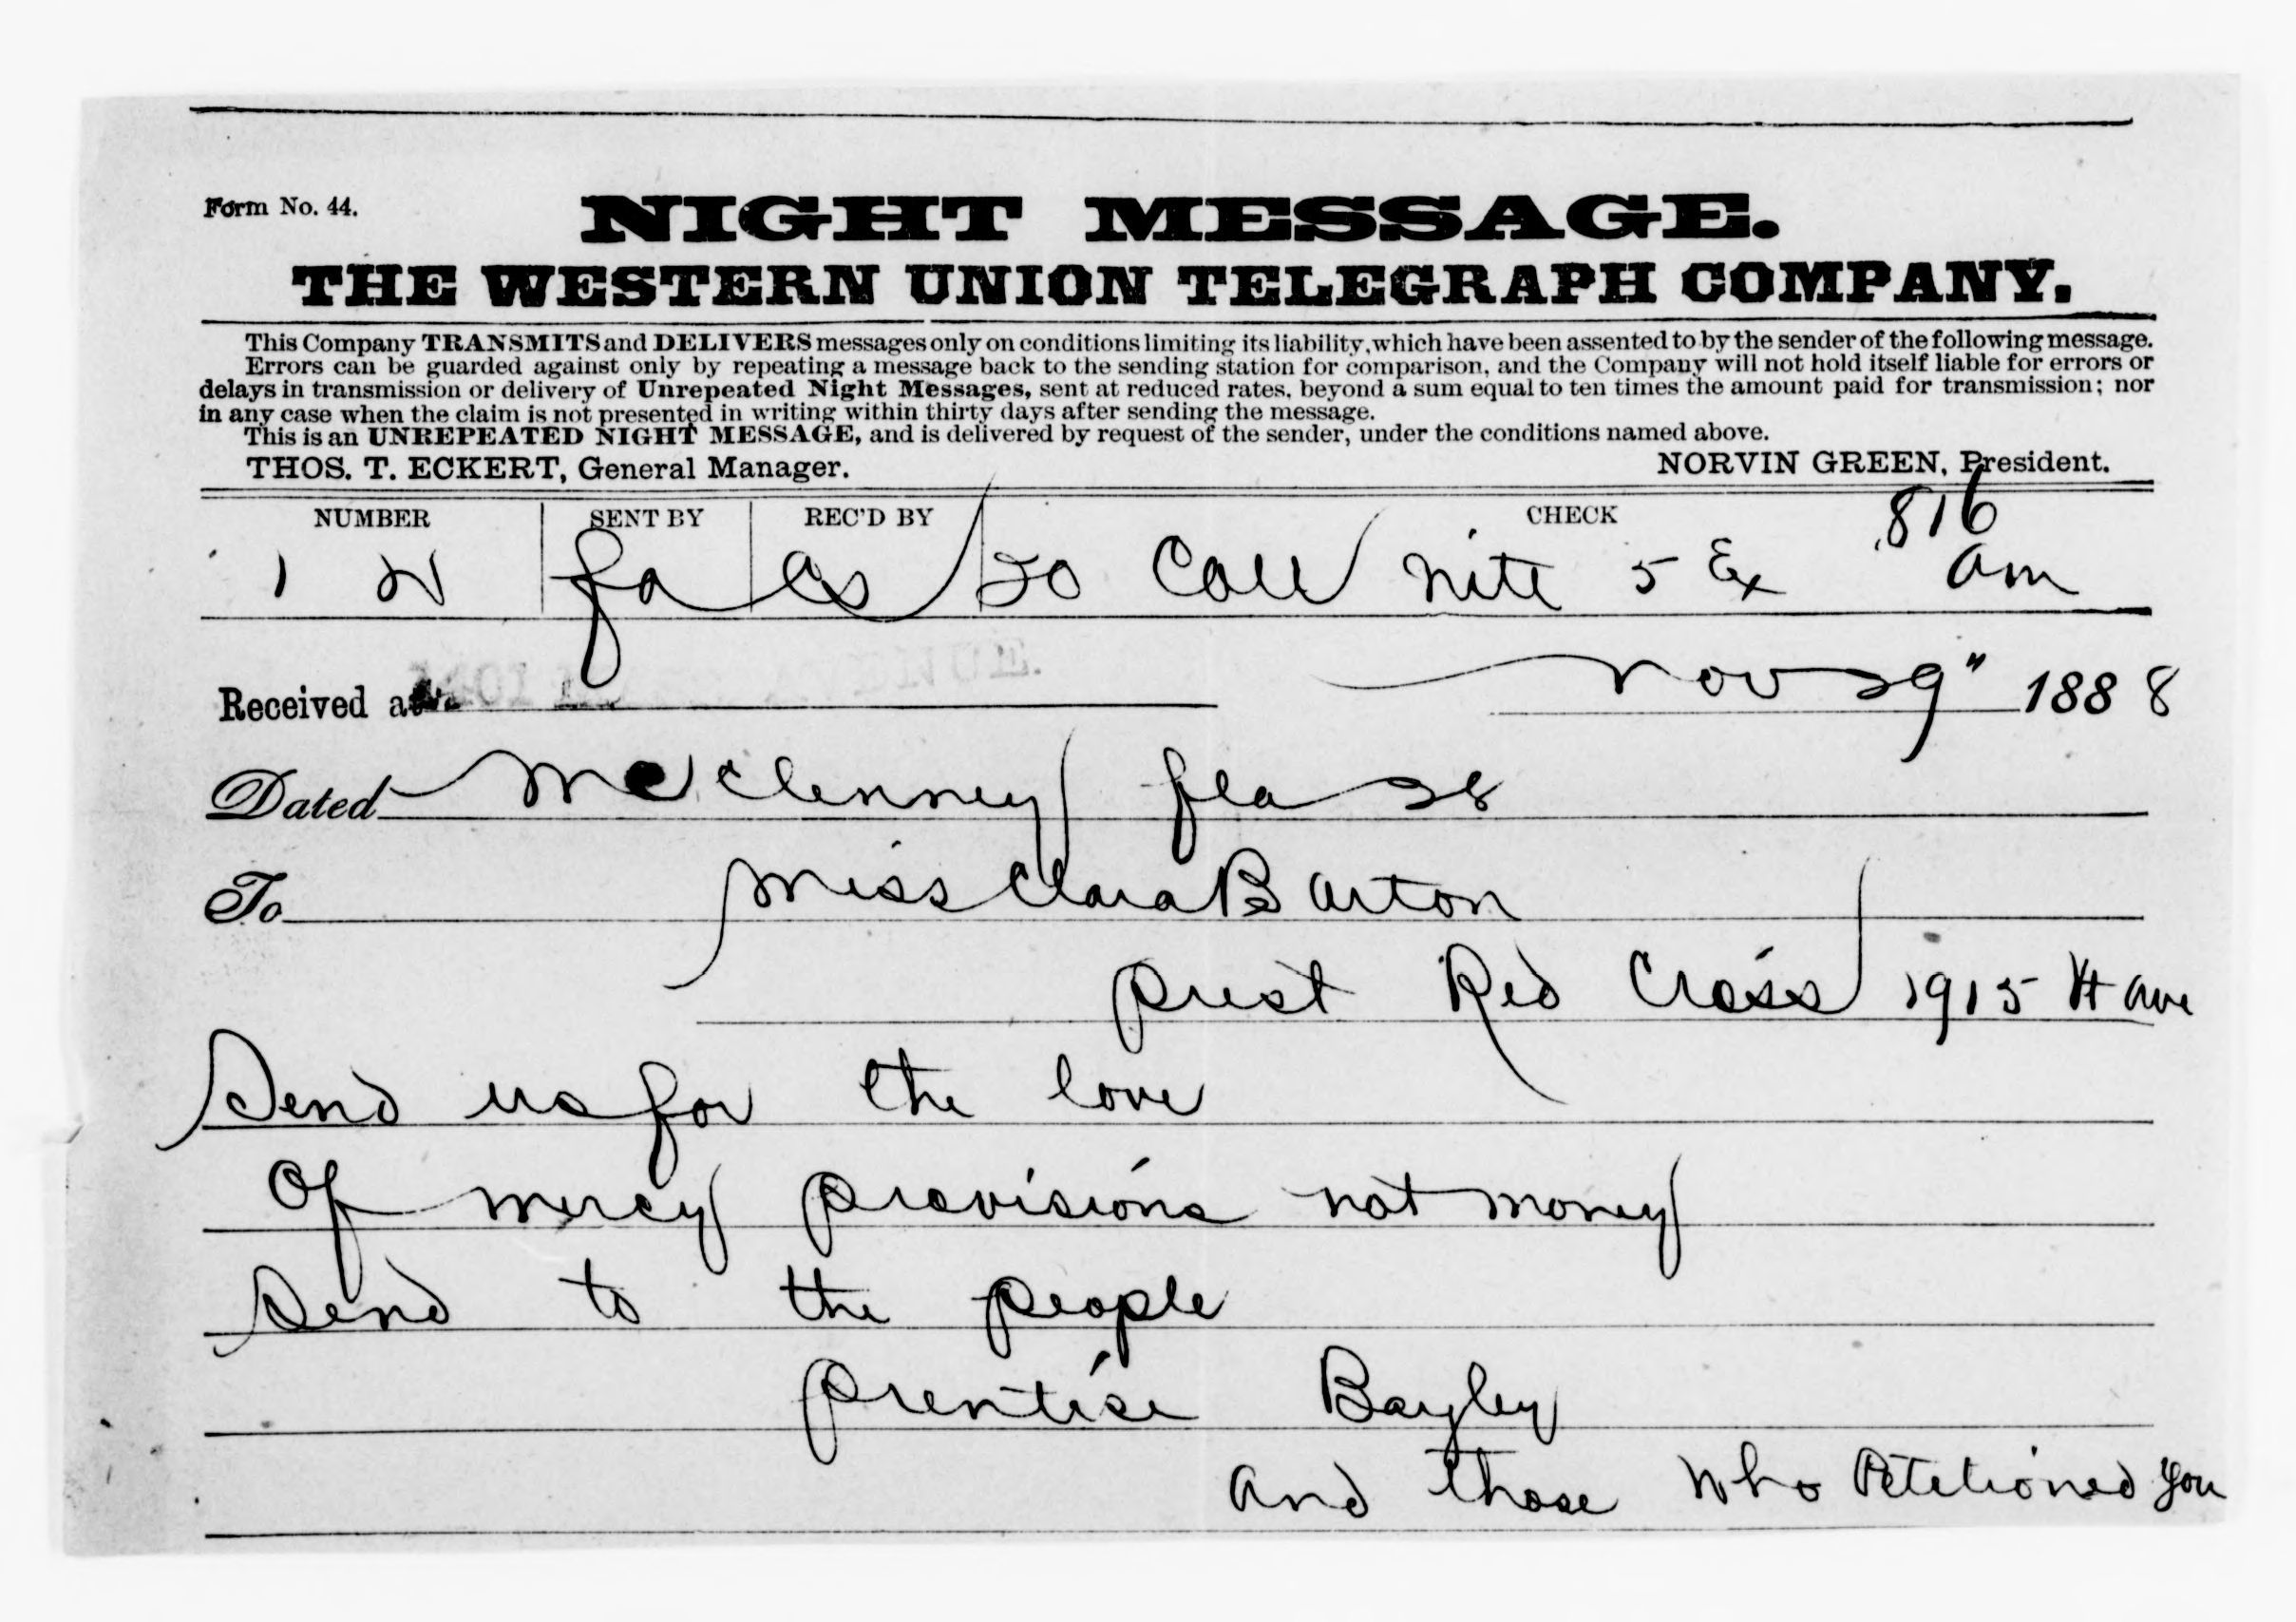 Form No. 44.
NIGHT MESSAGE.
THE WESTERN UNION TELEGRAPH COMPANY.
This Company TRANSMITS and DELIVERS messages only on conditions limiting its liability, which have been assented to by the sender of the following message.
Errors can be guarded against only by repeating a message back to the sending station for comparison, and the Company will not hold itself liable for errors or
delays in transmission or delivery of Unrepeated Night Messages, sent at reduced rates, beyond a sum equal to ten times the amount paid for transmission; nor
in any case when the claim is not presented in writing within thirty days after sending the message.
This is an UNREPEATED NIGHT MESSAGE, and is delivered by request of the sender, under the conditions named above.
THOS. T. ECKERT, General Manager. NORVIN GREEN, President.
NUMBER SENT BY REC'D BY CHECK 816
1 N fa as 20 Coll nite 5 Ex am
Received at AVENUE. Nov 29" 1888
Dated McClenney fla 28
To Miss Clara Barton
prest Red Cross 1915 Vt ave
Send us for the love
Of mercy provisions not money
Send to the people
prentise Bayley
and those who Petitioned you